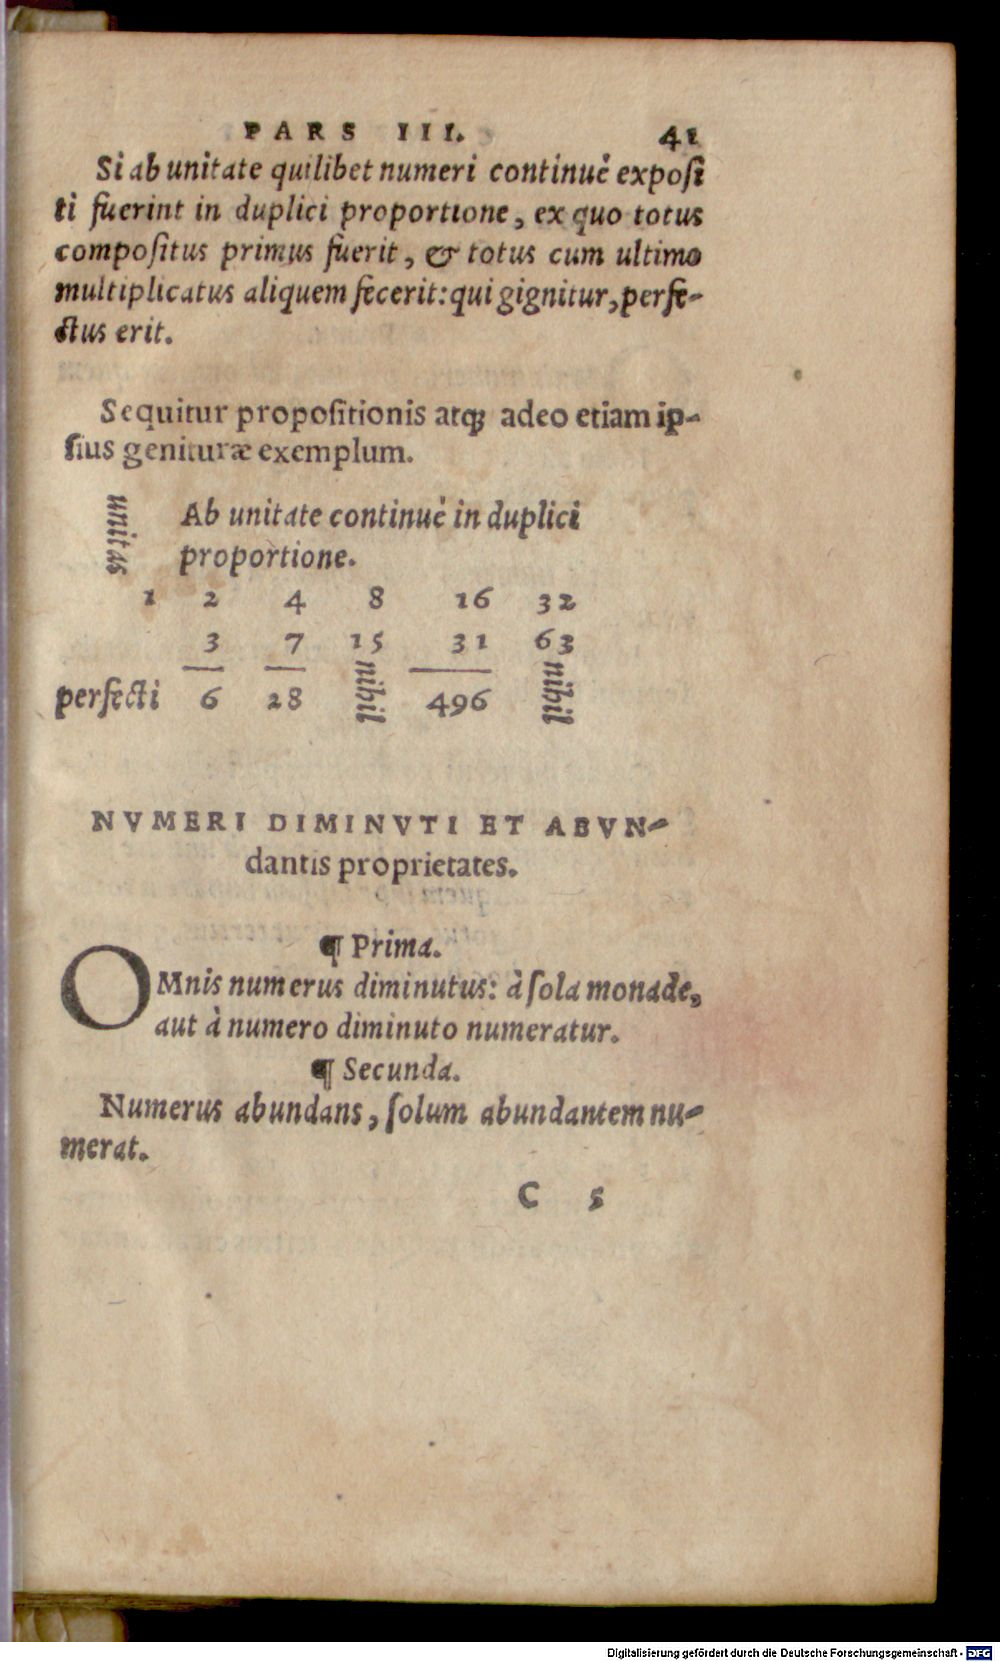 PARS III. 41
Si ab unitate quilibet numeri continuè exposi
ti fuerint in duplici proportione, ex quo totus
compositus primus fuerit, & totus cum ultimo
multiplicatus aliquem fecerit: qui gignitur, perfe-
ctus erit.
Sequitur propositionis atq; adeo etiam ip-
sius genituræ exemplum.
unitas
Ab unitate continuè in duplici
proportione.
1 2 4 8 16 32
3 7 15 31 63
perfecti 6 28 nihil 496 nihil
NVMERI DIMINVTI ET ABVN-
dantis proprietates.
¶ Prima.
OMnis numerus diminutus: à sola monade,
aut à numero diminuto numeratur.
¶ Secunda.
Numerus abundans, solum abundantem nu-
merat.
C 5
Digitalisierung gefördert durch die Deutsche Forschungsgemeinschaft - DFG